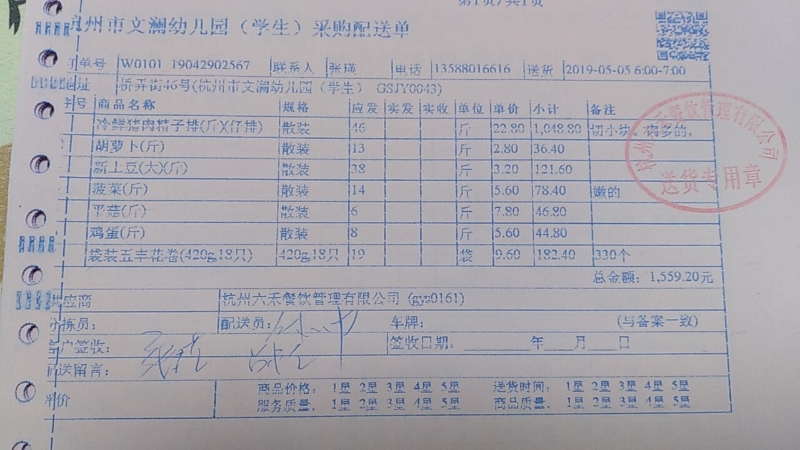 第1页/共1页
州市文澜幼儿园（学生）采购配送单
单号 W0101 19042902567 联系人 张瑛 电话 13588016616 送货 2019-05-05 6:00-7:00
地址 桥弄街46号(杭州市文澜幼儿园（学生） GSJY0043)
号 商品名称 规格 应发 实发 实收 单位 单价 小计 备注
冷鲜猪肉精子排(斤)(仔排) 散装 46 斤 22.80 1,048.80 切小块，肉多的，
胡萝卜(斤) 散装 13 斤 2.80 36.40
新土豆(大)(斤) 散装 38 斤 3.20 121.60
菠菜(斤) 散装 14 斤 5.60 78.40 嫩的
平菇(斤) 散装 6 斤 7.80 46.80
鸡蛋(斤) 散装 8 斤 5.60 44.80
袋装五丰花卷(420g,18只) 420g,18只 19 袋 9.60 182.40 330个
总金额： 1,559.20元
供应商 杭州六禾餐饮管理有限公司 (gys0161)
分拣员： 配送员： 车牌： (与备案一致)
客户签收： 签收日期： 年 月 日
配送留言：
评价 商品价格： 1星 2星 3星 4星 5星 送货时间： 1星 2星 3星 4星 5星
服务质量： 1星 2星 3星 4星 5星 商品质量： 1星 2星 3星 4星 5星
杭州六禾餐饮管理有限公司
送货专用章